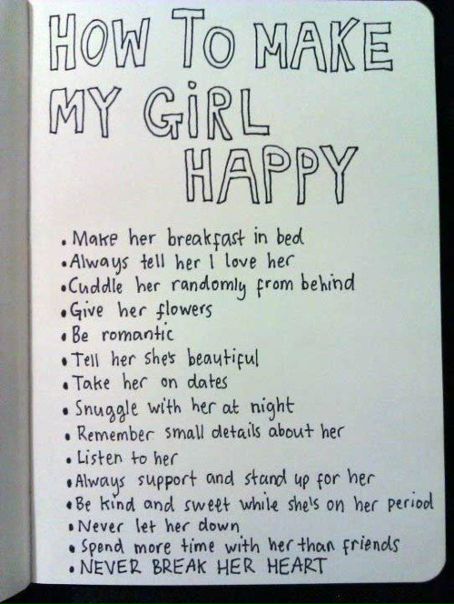 HOW TO MAKE
MY GiRL
HAPPY
• Make her breakfast in bed
• Always tell her I love her
• Cuddle her randomly from behind
• Give her flowers
• Be romantic
• Tell her she's beautiful
• Take her on dates
• Snuggle with her at night
• Remember small details about her
• Listen to her
• Always support and stand up for her
• Be kind and sweet while she's on her period
• Never let her down
• Spend more time with her than friends
• NEVER BREAK HER HEART